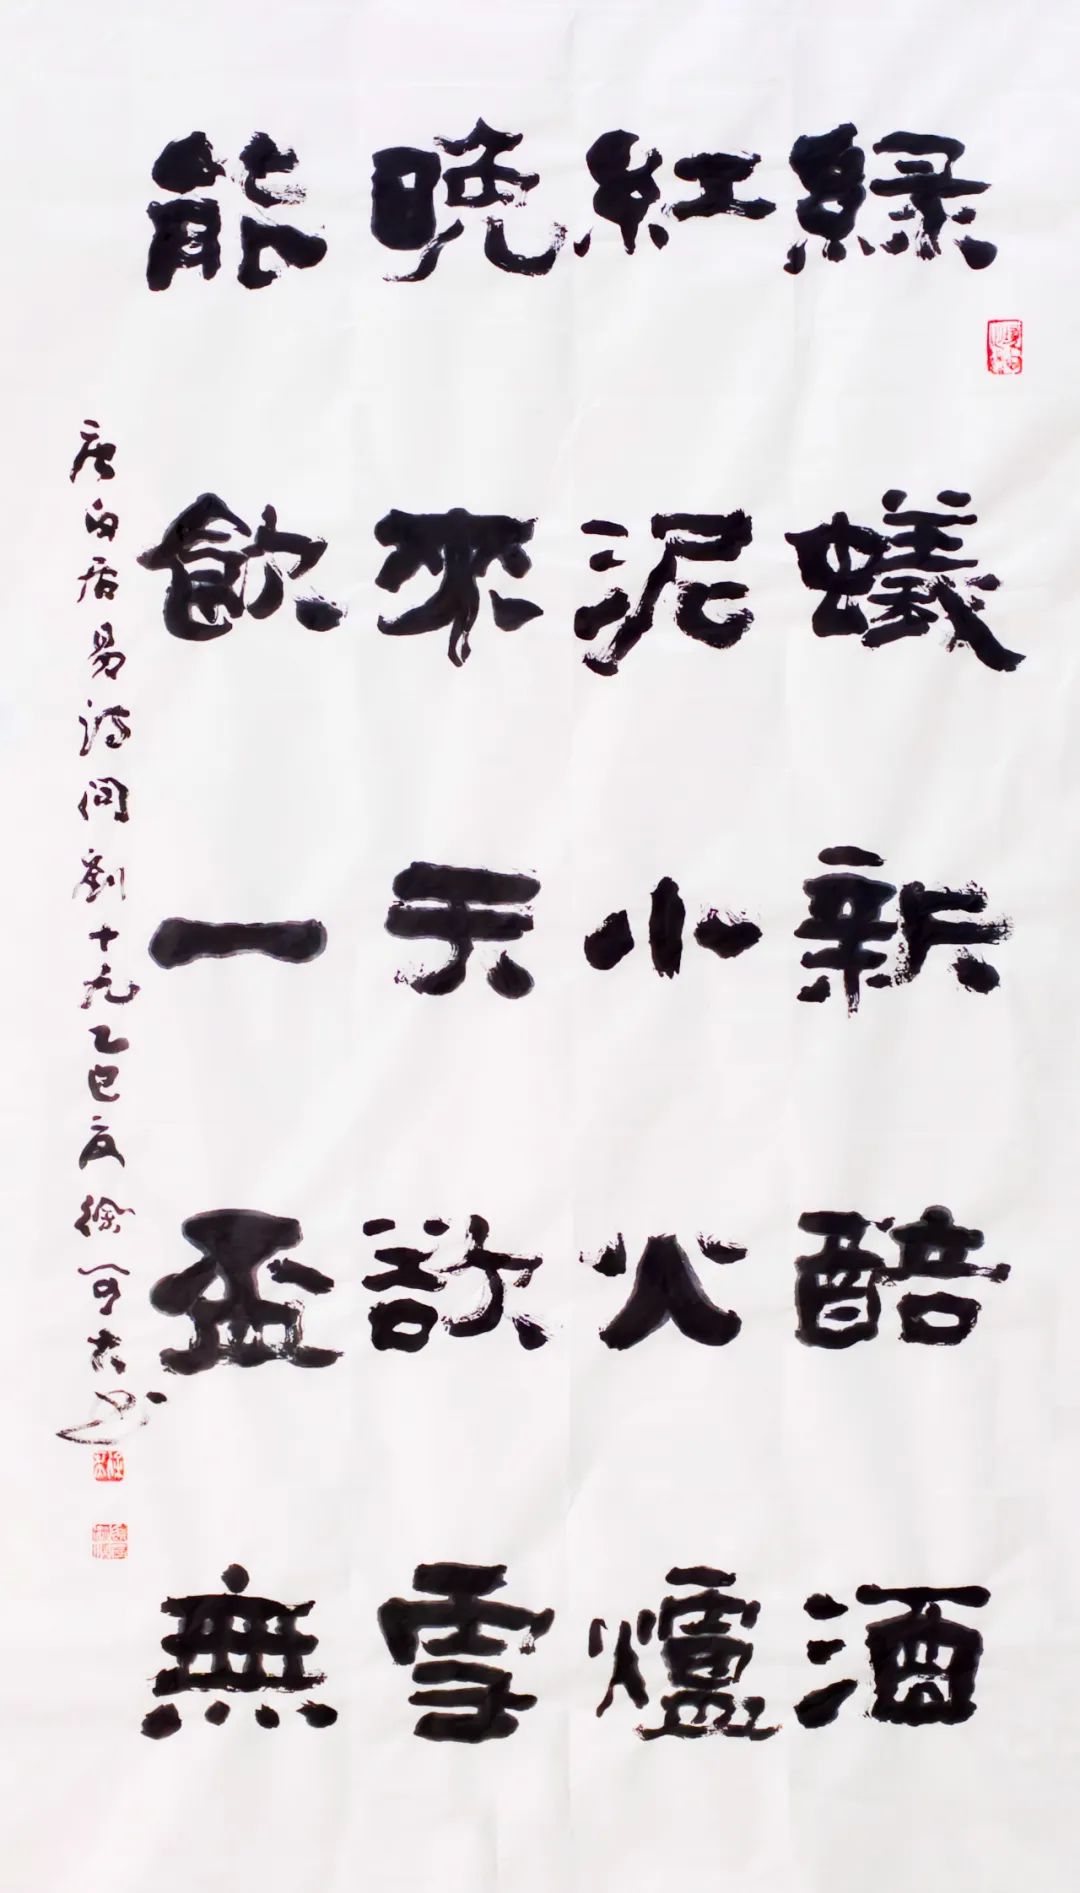 綠蟻新醅酒
紅泥小火爐
晚來天欲雪
能飲一盃無
唐白居易詩問劉十九乙巳夏徐書